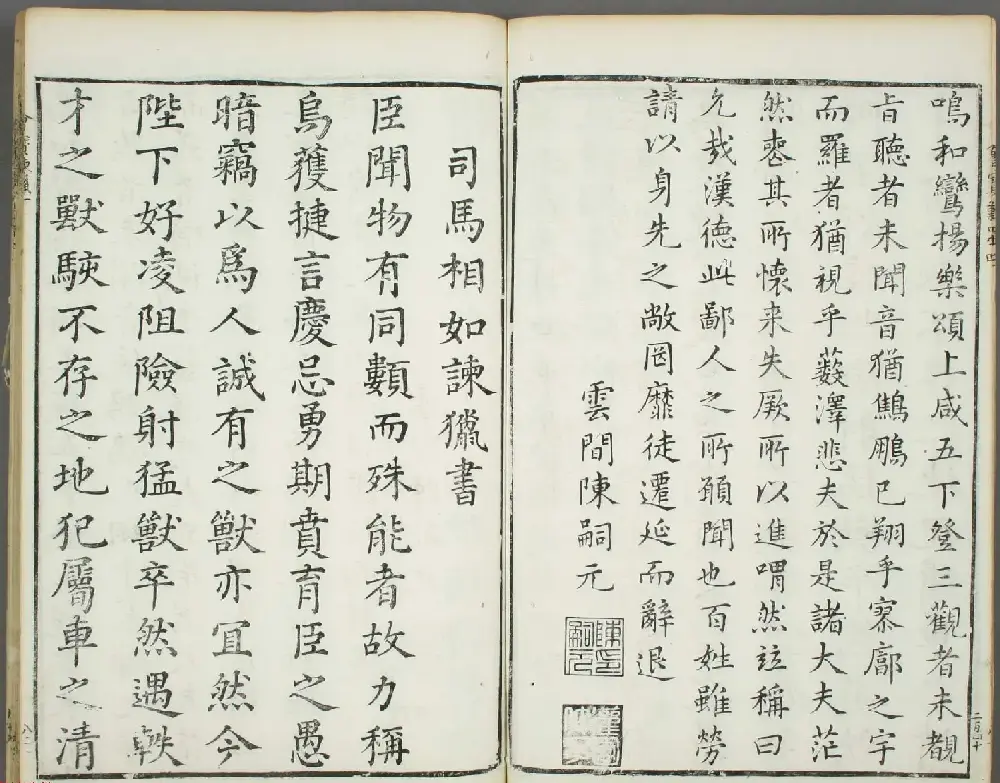 鳴和鸞揚樂頌上咸五下登三觀者未覩
㫖聽者未聞音猶鷦鵬已翔乎寥廓之宇
而羅者猶視乎藪澤悲夫於是諸大夫茫
然喪其所懷来失厥所以進喟然竝稱曰
允㦲漢德此鄙人之所願聞也百姓雖勞
請以身先之敞罔靡徒遷延而辭退
雲間陳嗣元
司馬相如諫獵書
臣聞物有同類而殊能者故力稱
烏獲捷言慶忌勇期賁育臣之愚
暗竊以爲人誠有之獸亦冝然今
陛下好凌阻險射猛獸卒然遇軼
才之獸駭不存之地犯屬車之清